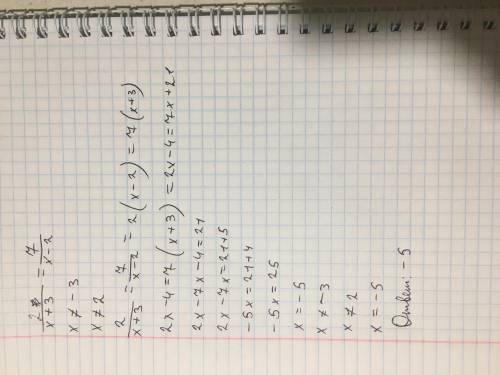 2/x+3 = 7/x-2
x ≠ -3
x ≠ 2
2/x+3 = 7/x-2 = 2(x-2) = 7(x+3)
2x-4=7(x+3) = 2x-4=7x+21
2x-7x-4=21
2x-7x=21+5
-5x=21+4
-5x=25
x=-5
x≠-3
x≠2
x=-5
Ответ: -5